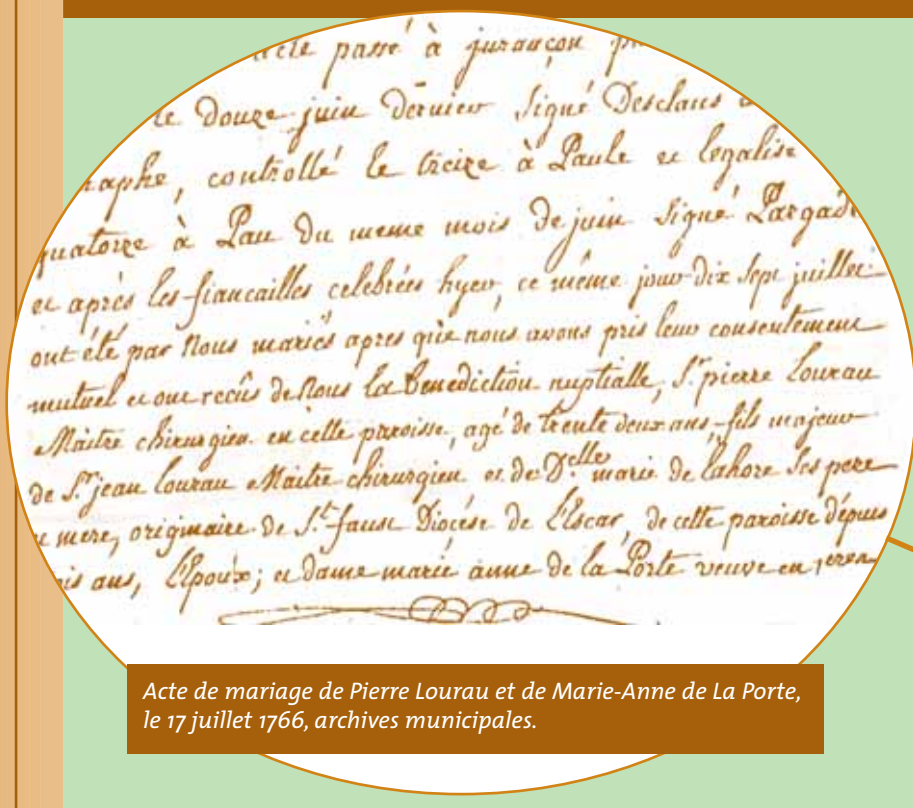 acte passé à jurançon
le douze juin dernier signé Desclaus
raphe, controllé le treize à Paule et legalisé
quatorze à Pau du meme mois de juin signé Pargade
et après les fiancailles celebrées hyer, ce même jour dix sept juillet
ont été par Nous mariés apres que nous avons pris leur consentement
mutuel et ont recûs de Nous la Benediction nuptialle, S.r pierre Lourau
Maitre chirurgien en cette paroisse, agé de trente deux ans, fils majeur
de S.r jean lourau Maitre chirurgien et de D.elle marie de lahore ses pere
et mere, originaire de S.t faust Diocése de l'Escar, de cette paroisse dépuis
ois ans, l'Epoux; et dame marie anne de la Porte veuve en
Acte de mariage de Pierre Lourau et de Marie-Anne de La Porte,
le 17 juillet 1766, archives municipales.